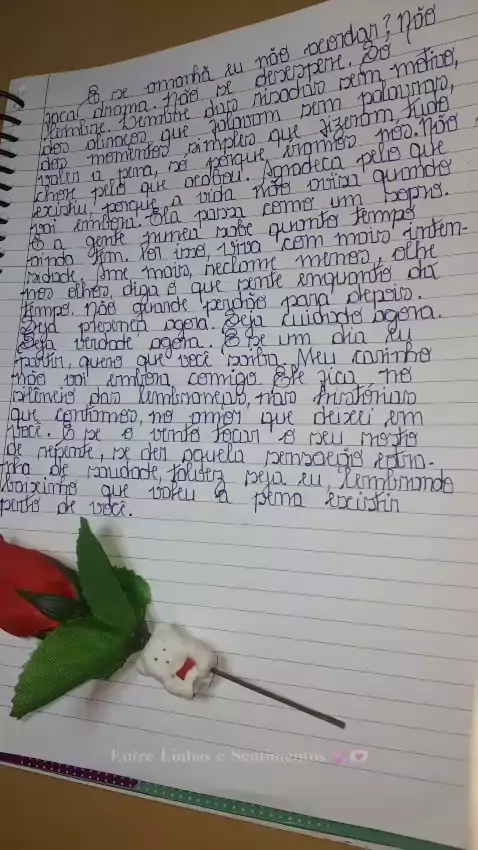 E se amanhã eu não acordar? Não
faça drama. Não se desespere. Só
lembre. Lembre das risadas sem motivo,
dos olhares que falavam sem palavras,
dos momentos simples que fizeram tudo
valer a pena, só porque éramos nós. Não
chore pelo que acabou. Agradeça pelo que
existiu, porque a vida não avisa quando
vai embora. Ela passa como um sopro.
E a gente nunca sabe quanto tempo
ainda tem. Por isso, viva com mais inten-
sidade. Ame mais, reclame menos, olhe
nos olhos, diga o que sente enquanto dá
tempo. Não guarde perdão para depois.
Seja presença agora. Seja cuidado agora.
Seja verdade agora. E se um dia eu
partir, quero que você saiba. Meu carinho
não vai embora comigo. Ele fica no
silêncio das lembranças, nas histórias
que contamos, no amor que deixei em
você. E se o vento tocar o seu rosto
de repente, se der aquela sensação estra-
nha de saudade, talvez seja eu, lembrando
baixinho que valeu a pena existir
perto de você.
Entre Linhas e Sentimentos